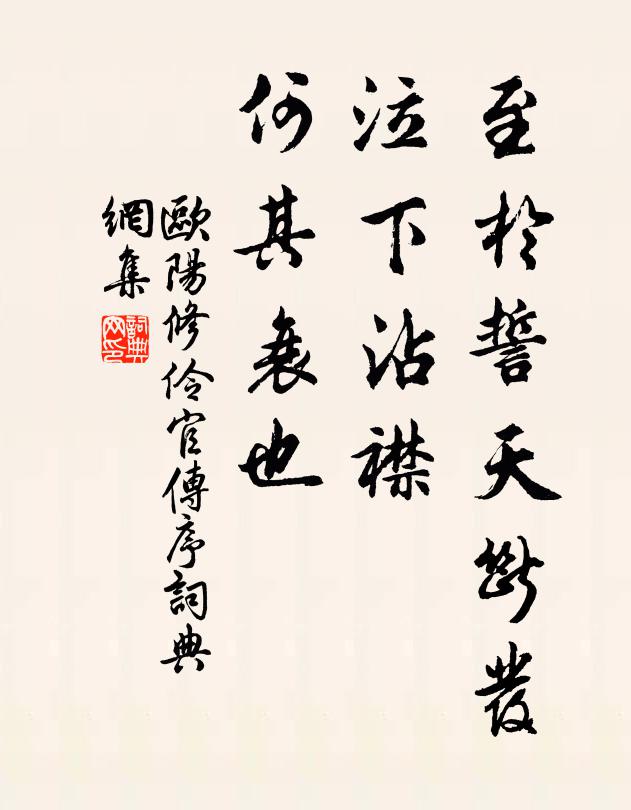 至於誓天斷發
泣下沾襟
何其衰也
歐陽修伶官傳序詞典
網集
詞典網印